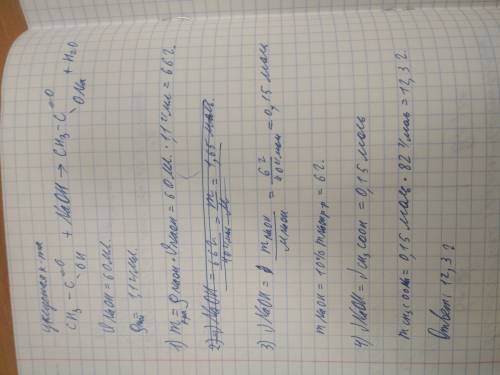 уксусная к-та
CH₃ - C =O - OH + NaOH → CH₃ - C =O - ONa + H₂O
V NaOH = 60 мл.
1,1 г/мл.
1) m р-ра = ρ NaOH · V NaOH = 60 мл. · 1,1 г/мл = 66 г.
3) ν NaOH = m NaOH / M NaOH = 6 г / 40 г/моль = 0,15 моль
m NaOH = 10% m р-р = 6 г.
4) ν NaOH = ν CH₃COOH = 0,15 моль
m = 0,15 моль · 82 г/моль = 12,3 г.
Ответ: 12,3 г